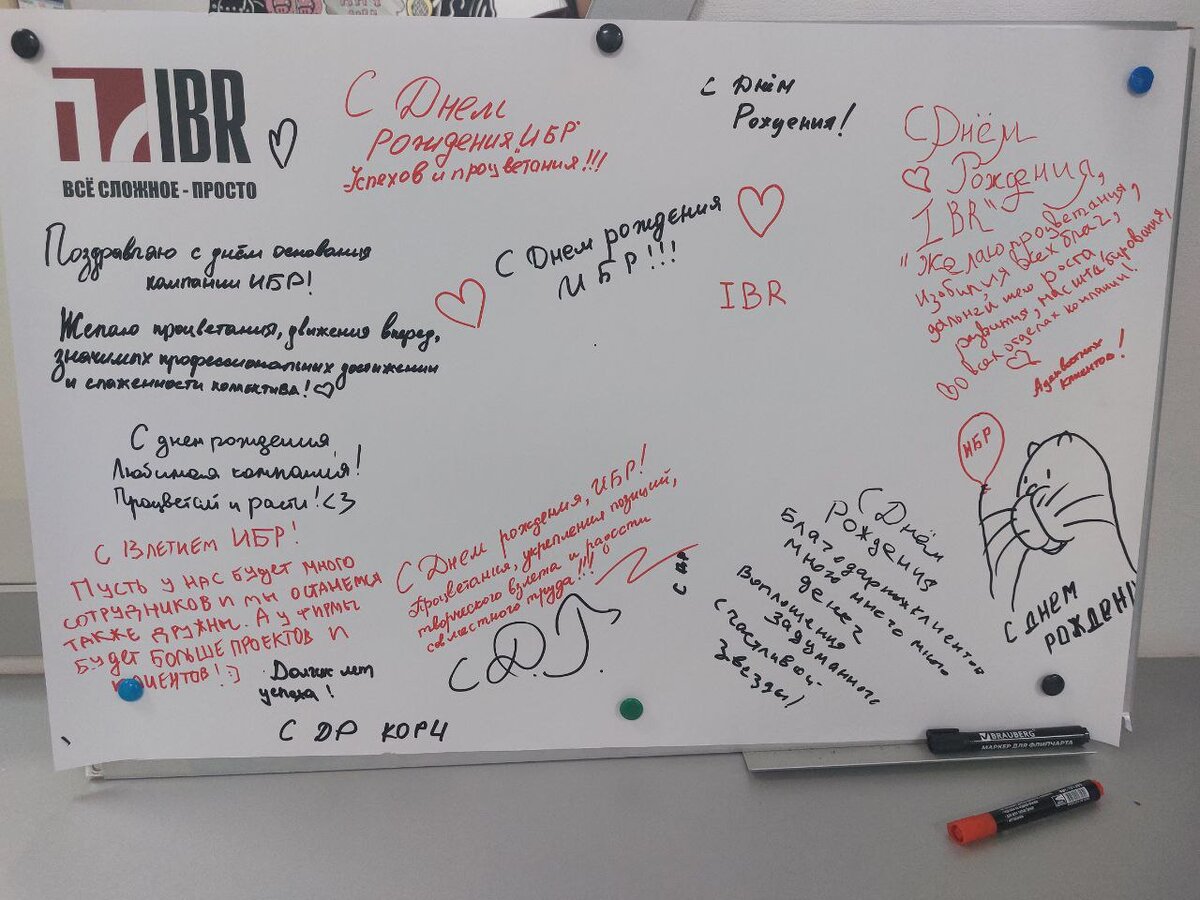 IBR
ВСЁ СЛОЖНОЕ - ПРОСТО
С Днем
рождения, ИБР
Успехов и процветания!!!
С Днём
Рождения!
С Днём
Рождения,
IBR"
"Желаю процветания,
изобилия всех благ,
дальнейшего роста,
развития, масштабирования,
во всех отделах компании!
Адекватных
клиентов!
Поздравляю с днём основания
компании ИБР!
Желаю процветания, движения вперед,
значимых профессиональных достижении
и слаженности коллектива!
С Днем рождения
ИБР!!!
IBR
С днем рождения,
Любимая компания!
Процветай и расти! <3
С 13 ЛЕТИЕМ ИБР!
ПУСТЬ У НАС БУДЕТ МНОГО
СОТРУДНИКОВ И МЫ ОСТАНЕМСЯ
ТАКЖЕ ДРУЖНЫ. А У ФИРМЫ
БУДЕТ БОЛЬШЕ ПРОЕКТОВ И
КЛИЕНТОВ! :)
Долгих лет
успеха!
С ДР КОРЧ
С Днем рождения, ИБР!
Процветания, укрепления позиций,
творческого взлета и радости
совместного труда!!!
С Д.Р.
С ДР
С Днём
Рождения
Благодарных клиентов
много много много
денег
Воплощения
задуманного
Счастливой
Звезды!
ИБР
С ДНЕМ
РОЖДЕНИ
BRAUBERG
МАРКЕР ДЛЯ ФЛИПЧАРТА